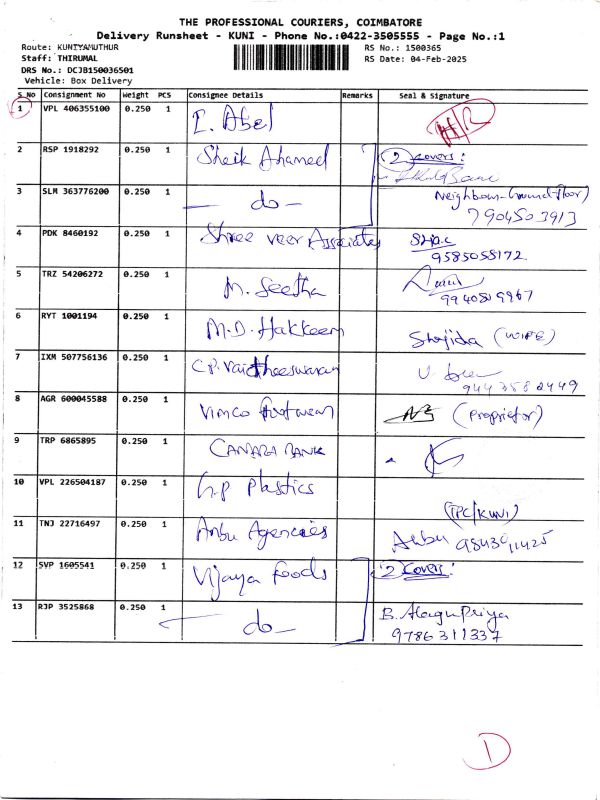 THE PROFESSIONAL COURIERS, COIMBATORE
Delivery Runsheet - KUNI - Phone No.:0422-3505555 - Page No.:1
Route: KUNIYAMUTHUR RS No.: 1500365
Staff: THIRUMAL RS Date: 04-Feb-2025
DRS No.: DCJB150036501
Vehicle: Box Delivery
S No Consignment No Weight PCS Consignee Details Remarks Seal & Signature
1 VPL 406355100 0.250 1 Abel
2 RSP 1918292 0.250 1 Sheik Ahamed 2 covers:
3 SLM 363776200 0.250 1 - do - Neighbour-(Ground-floor)
7904503913
4 PDK 8460192 0.250 1 Shree veer Associates
9585058172
5 TRZ 54206272 0.250 1 M. Seetha
9940819967
6 RYT 1001194 0.250 1 M.D. Hakkeem Shajida (WIFE)
7 IXM 507756136 0.250 1 C.P. Vaidheeswaran
9443582449
8 AGR 600045588 0.250 1 Vimco footwear (Proprietor)
9 TRP 6865895 0.250 1 CANARA BANK
10 VPL 226504187 0.250 1 G.P Plastics (TPC/KUNI)
11 TNJ 22716497 0.250 1 Anbu Agencies Anbu
12 SVP 1605541 0.250 1 Vijaya foods 2 covers:
13 RJP 3525868 0.250 1 - do - B. AlaguPriya
9786311337
1